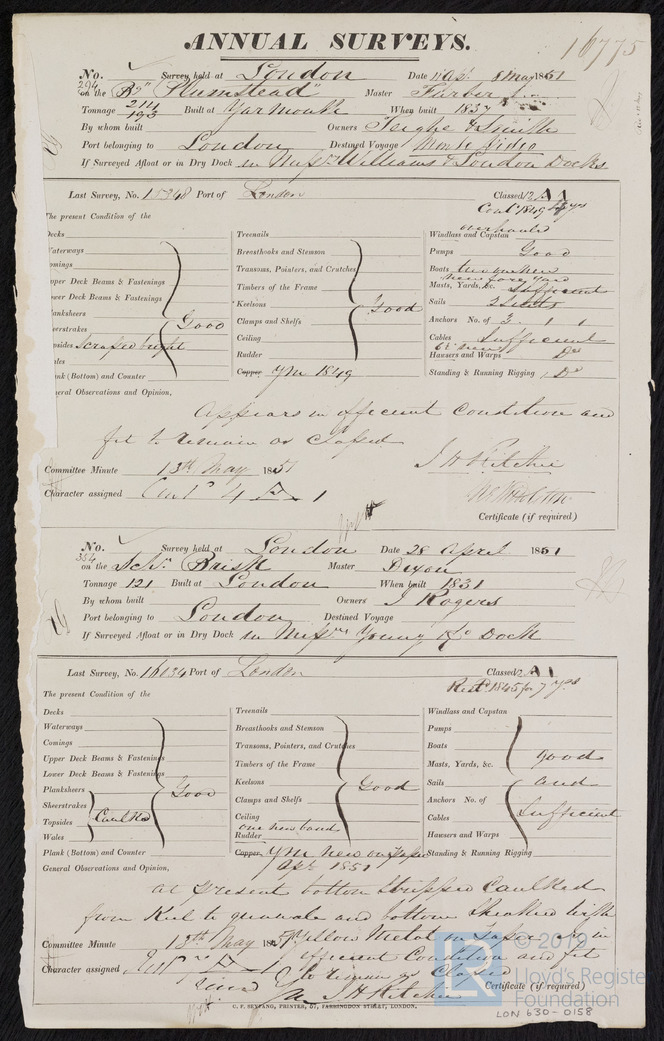 16775
ANNUAL SURVEYS.
No. 294 Survey held at London Date 11 Ap. 8 May 1851
on the Bg "Plumstead" Master Farber
Tonnage 211/193 Built at Yarmouth When built 1837
By whom built Owners Teighe & Smith
Port belonging to London Destined Voyage Monte Video
If Surveyed Afloat or in Dry Dock in Messrs Williams & London Docks
Last Survey, No. 15348 Port of London Classed 12 A 1
Cont. 1849
The present Condition of the overhauled
Decks Treenails Windlass and Capstan
Waterways Breasthooks and Stemson Pumps Good
Comings Transoms, Pointers, and Crutches Boats two
Upper Deck Beams & Fastenings Timbers of the Frame Masts, Yards, &c. Sufficient
Lower Deck Beams & Fastenings Keelsons Good Sails 2 Suits
Planksheers Clamps and Shelfs Anchors No. of 3. 1. 1
Sheerstrakes Good Ceiling Cables Sufficient
Topsides scraped bright Rudder Hawsers and Warps Do
Plank (Bottom) and Counter Copper YM 1849 Standing & Running Rigging Do
General Observations and Opinion,
Appears in efficient condition and
fit to remain as Classed
J H Ritchie
Committee Minute 13th May 1851
Character assigned Contd A 1
Certificate (if required)
No. 354 Survey held at London Date 28 April 1851
on the Schr. Brisk Master Dixon
Tonnage 121 Built at London When built 1831
By whom built Owners J Rogers
Port belonging to London Destined Voyage
If Surveyed Afloat or in Dry Dock in Messrs Young & Co Dock
Last Survey, No. 16034 Port of London Classed A 1
Restd. 1845 for 7 yrs
The present Condition of the
Decks Treenails Windlass and Capstan
Waterways Breasthooks and Stemson Pumps
Comings Transoms, Pointers, and Crutches Boats
Upper Deck Beams & Fastenings Timbers of the Frame Masts, Yards, &c. good
Lower Deck Beams & Fastenings Keelsons Good Sails and
Planksheers Good Clamps and Shelfs Anchors No. of
Sheerstrakes Ceiling Cables Sufficient
Topsides Caulked one new band
Wales Rudder Hawsers and Warps
Plank (Bottom) and Counter Copper YM New on Paper Standing & Running Rigging
General Observations and Opinion, Apl 1851
at present bottom Stripped Caulked
from Keel to gunwale and bottom Sheathed with
Yellow Metal on paper is in
Committee Minute 13th May 1851 efficient Condition and fit
Character assigned A 1 to remain as Classed
J H Ritchie Certificate (if required)
C. F. SEYFANG, PRINTER, 57, FARRINGDON STREET, LONDON.
© 2019
Lloyd's Register
Foundation
LON 630-0158